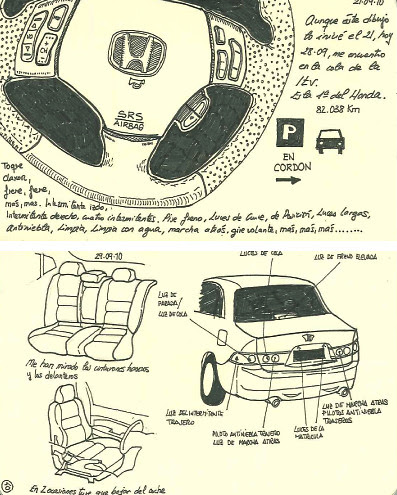 21.09.10
Aunque este dibujo
lo inicié el 21, hoy
28.09, me encuentro
en la cola de la
ITV.
Es la 1ª del Honda.
82.038 Km
CH
SRS
AIRBAG
P
EN
CORDÓN
Toque
claxon,
frene, frene,
más, más. Intermitente izdo,
Intermitente derecho, cuatro intermitentes. Pise freno, Luces de Cruce, de Posición, Luces largas,
Antiniebla, Limpia, Limpia con agua, marcha atrás, gire volante, más, más, más........
29.09.10
LUCES DE COLA
LUZ DE FRENO ELEVADA
LUZ DE
PARADA/
LUZ DE COLA
Me han mirado los cinturones traseros
y los delanteros
LUZ DEL INTERMITENTE
TRASERO
PILOTO ANTINIEBLA TRASERO
LUZ DE MARCHA ATRÁS
LUCES DE LA
MATRÍCULA
LUZ DE MARCHA ATRÁS
PILOTOS ANTINIEBLA
TRASEROS
En 2 ocasiones tuve que bajar del coche